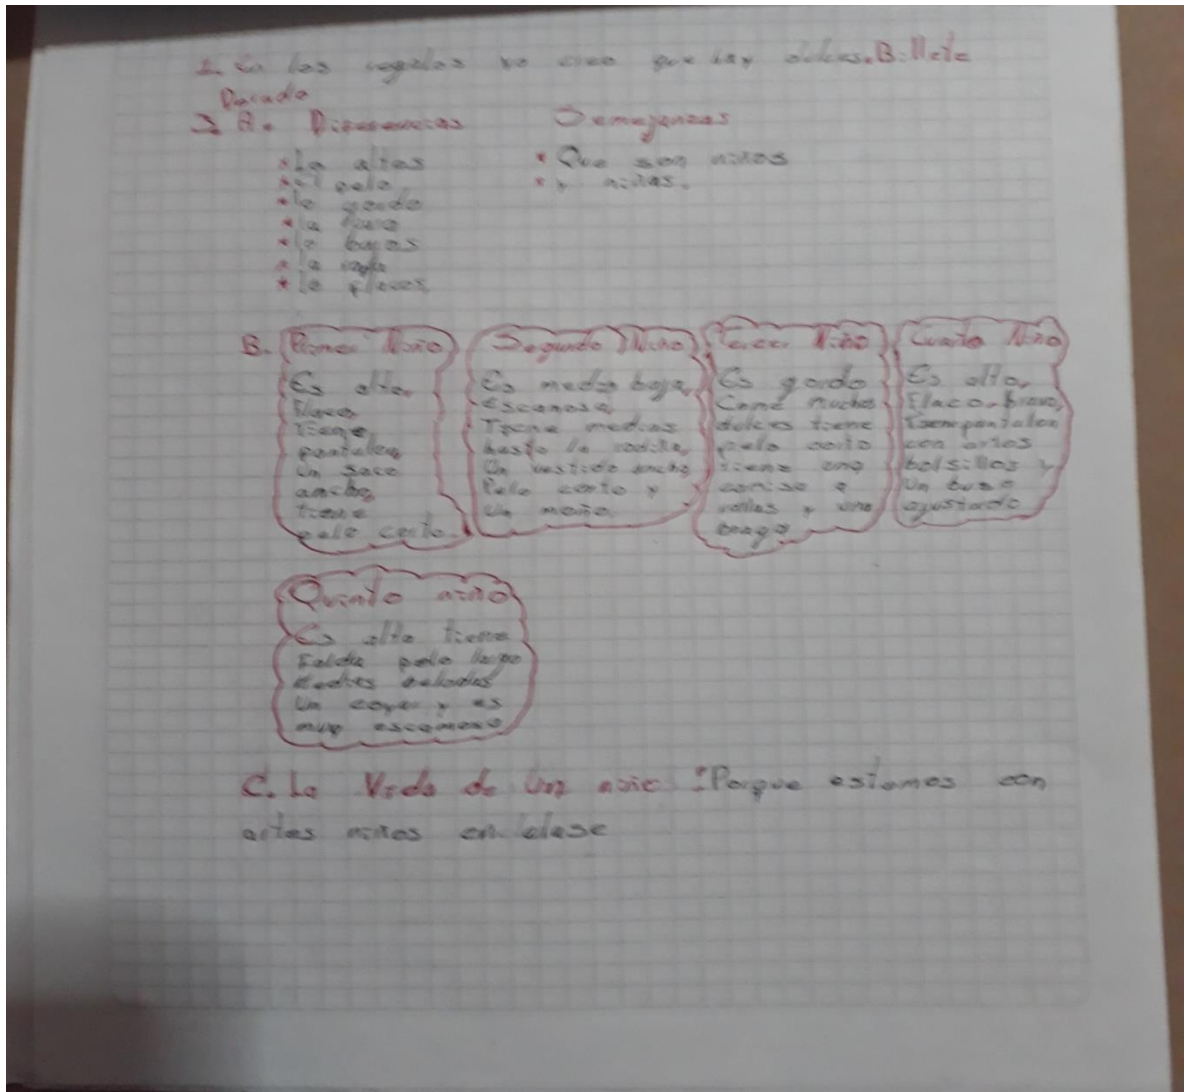 1. En los regalos yo creo que hay dulces. Billete
Dorado
2 A. Diferencias
Semejanzas
* La altas
* el pelo
* lo gordo
* la
* lo bajos
* la ropa
* lo flacos
* Que son niños
* y niñas.
B.
Primer Niño
Es alto,
flaco,
Tiene
pantalon,
Un saco
ancho,
tiene
pelo corto.
Segundo Niño
Es medio baja,
Tiene medias
hasta la rodilla,
Un vestido ancho
Pelo corto y
Un moño.
Tercer Niño
Es gordo
Come muchos
dulces tiene
pelo corto
tiene una
camisa a
rallas y una
Cuarto Niño
Es alto,
Flaco, bravo,
Tiene pantalon
con artos
bolsillos y
Un buso
ajustado
Quinto niño
Es alta tiene
Falda pelo largo
Medias
Un y es
muy
C. La Vida de Un niño: Porque estamos con
artos niños en clase